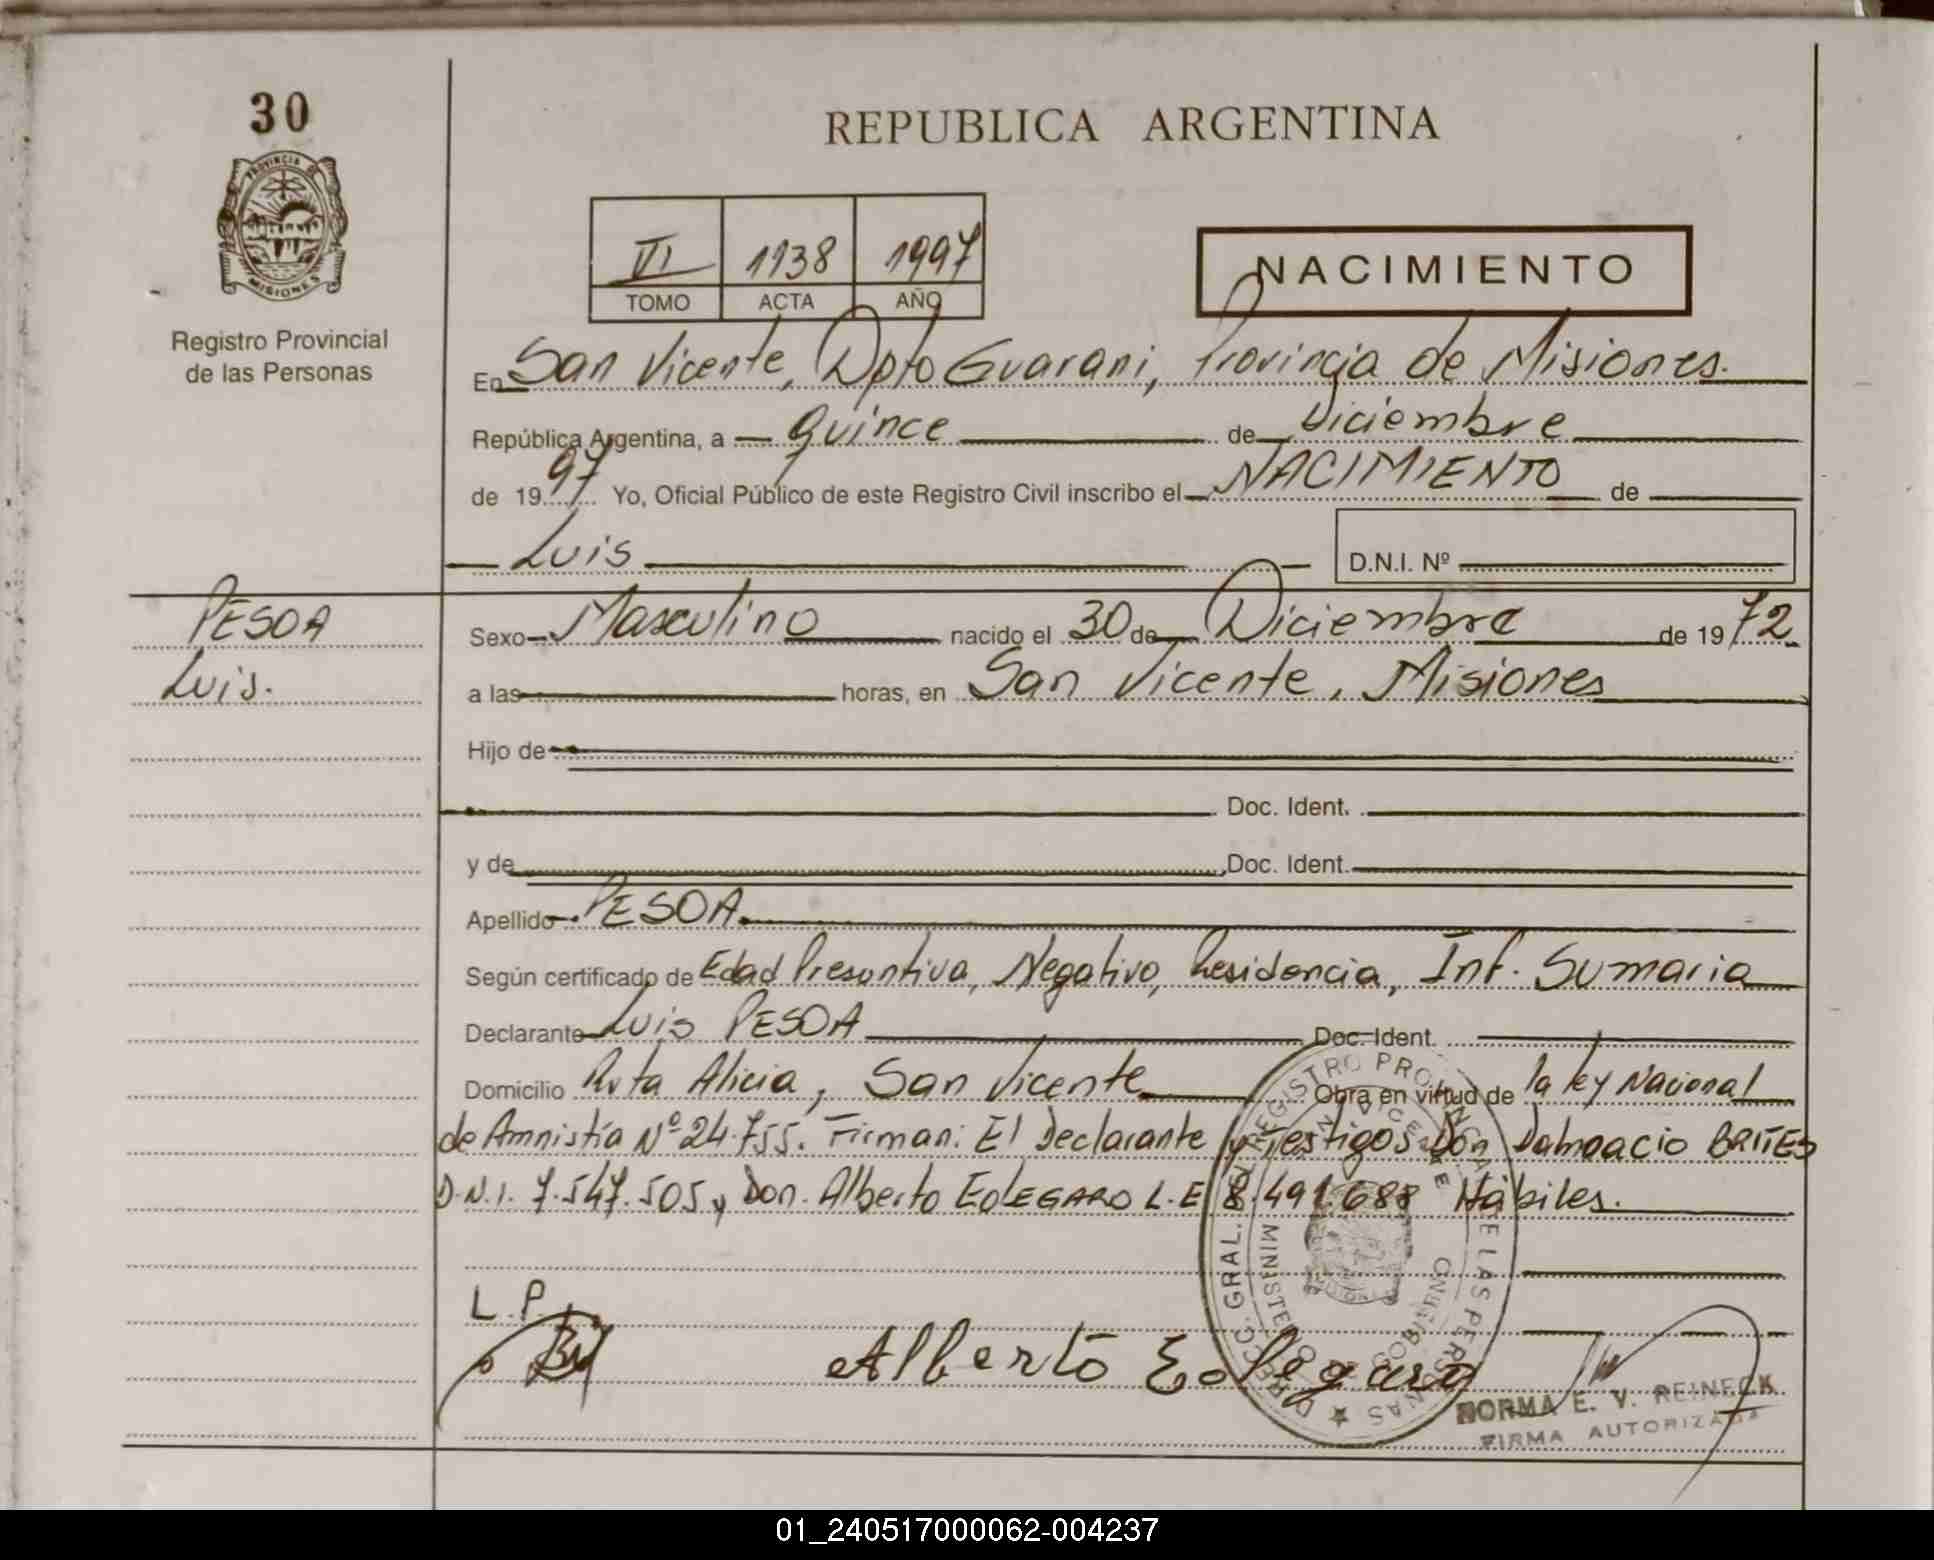 30
PROVINCIA DE
MISIONES
Registro Provincial
de las Personas
REPUBLICA ARGENTINA
VI 1138 1997
TOMO ACTA AÑO
NACIMIENTO
En San Vicente, Dpto Guarani, Provincia de Misiones.
República Argentina, a quince de Diciembre
de 1997 Yo, Oficial Público de este Registro Civil inscribo el NACIMIENTO de
Luis D.N.I. Nº
PESOA
Luis.
Sexo Masculino nacido el 30 de Diciembre de 1972
a las horas, en San Vicente, Misiones
Hijo de
Doc. Ident.
y de Doc. Ident.
Apellido PESOA
Según certificado de Edad Presuntiva, Negativo, Residencia, Inf. Sumaria
Declarante Luis PESOA Doc. Ident.
Domicilio Ruta Alicia, San Vicente Obra en virtud de la ley Nacional
de Amnistía Nº 24.755. Firman: El Declarante y Testigos Don Dalmacio BRITES
D.N.I. 7.547.505 y Don. Alberto EOLEGARO L.E 8.491.688 Hábiles.
L.P.
Alberto Eolegaro
DIRECC. GRAL. DEL REGISTRO PROVINCIAL DE LAS PERSONAS
MINISTERIO DE GOBIERNO
SAN VICENTE
MISIONES
NORMA E. V. REINECK
FIRMA AUTORIZADA
01_240517000062-004237